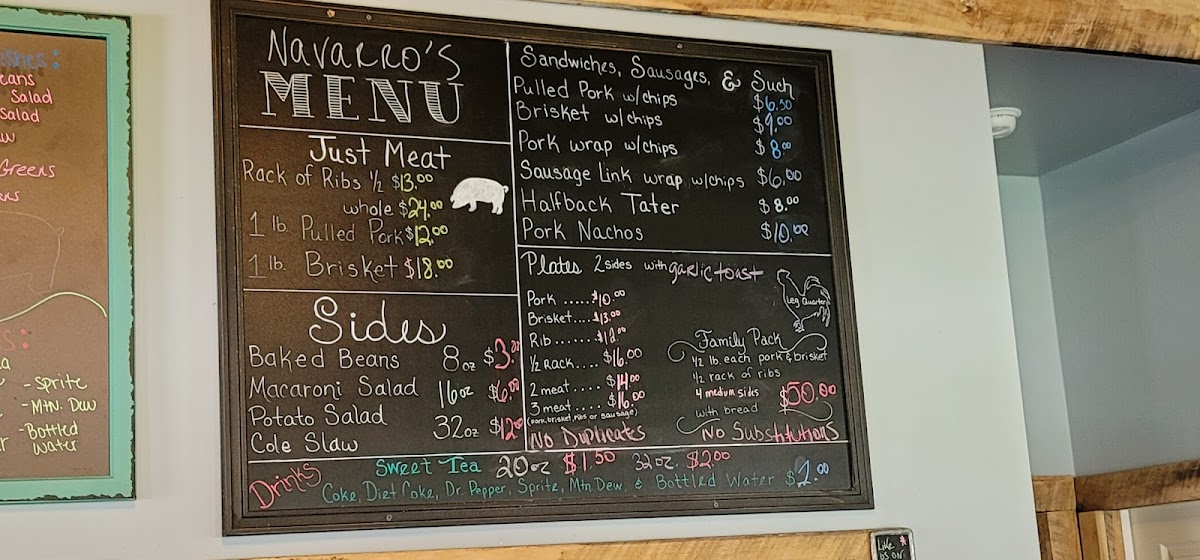 eans
Salad
Salad
Greens
- Sprite
- Mtn. Dew
- Bottled
Water
Navarro's
MENU
Just Meat
Rack of Ribs 1/2 $13.00
whole $24.00
1 lb. Pulled Pork $12.00
1 lb. Brisket $18.00
Sides
Baked Beans 8oz $3.00
Macaroni Salad 16oz $6.00
Potato Salad
32oz $12.00
Cole Slaw
Sandwiches, Sausages, & Such
Pulled Pork w/chips $6.50
Brisket w/chips $9.00
Pork wrap w/chips $8.00
Sausage Link wrap w/chips $6.00
Halfback Tater $8.00
Pork Nachos $10.00
Plates 2 sides with garlic toast
Pork ..... $10.00
Brisket.... $13.00
Rib ....... $12.00
1/2 Rack.... $16.00
2 meat .... $14.00
3 meat .... $16.00
(pork, brisket, ribs or sausage)
No Duplicates
Leg Quarter
Family Pack
1/2 lb. each pork & brisket
1/2 rack of ribs
4 medium sides $50.00
with bread
No Substitutions
Drinks
Sweet Tea 20oz $1.50 32oz. $2.00
Coke, Diet Coke, Dr. Pepper, Sprite, Mtn. Dew, & Bottled Water $1.00
Like
us on